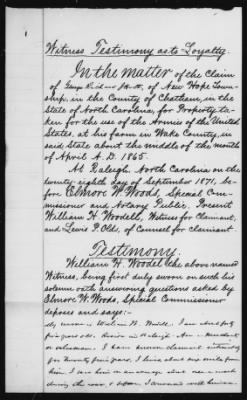 Witness Testimony as to Loyalty.
In the matter of the claim
of George
of New Hope Town-
ship, in the County of Chatham, in the
State of North Carolina, for Property ta-
ken for the use of the Armies of the United
States, at his farm in Wake County, in
said State about the middle of the month
of April A.D. 1865.
At Raleigh North Carolina on the
twenty eighth day of September 1871, be-
fore Elmore W. Wood, Special Com-
missioner and Notary Public. Present
William H. Woodell, Witness for Claimant,
and Lewis P. Olds, of Counsel for claimant
Testimony.
William H. Woodell the above named
Witness, being first duly sworn on such his
solemn oath answering questions asked by
Elmore W. Woods, Special Commissioner
deposes and says:-
My name is William H. Woodell. I am
five years old. Reside in Raleigh.
I have known claimant
for twenty five years, I lived about one mile from
him. I saw him on an average
during the war, & before I